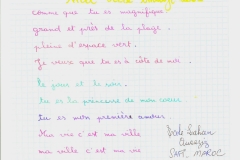 comme que tu es magnifique
grand et près de la plage.
pleine d'espace vert.
Je veux que tu es à côté de moi.
le jour et la nuit.
tu es la princesse de mon cœur
tu es mon première amour
Ma vie c'est ma ville
ma ville c'est ma vie
SAFI, MAROC